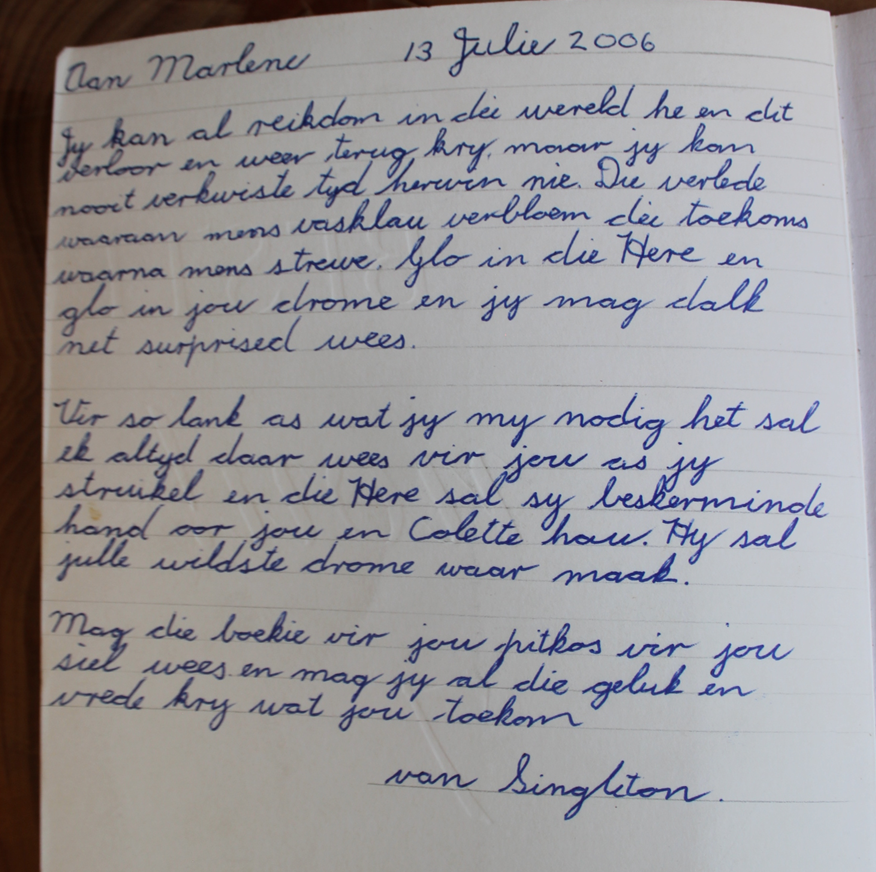 Aan Marlene 13 Julie 2006
Jy kan al reikdom in dei wereld he en dit
verloor en weer terug kry, maar jy kan
nooit verkwiste tyd herwin nie. Die verlede
waaraan mens vasklau verbloem dei toekoms
waarna mens strewe. Glo in die Here en
glo in jou drome en jy mag dalk
net surprised wees.
Vir so lank as wat jy my nodig het sal
ek altyd daar wees vir jou as jy
struikel en die Here sal sy beskerminde
hand oor jou en Colette hou. Hy sal
julle wildste drome waar maak.
Mag die boekie vir jou pitkos vir jou
siel wees en mag jy al die geluk en
vrede kry wat jou toekom
van Singleton.